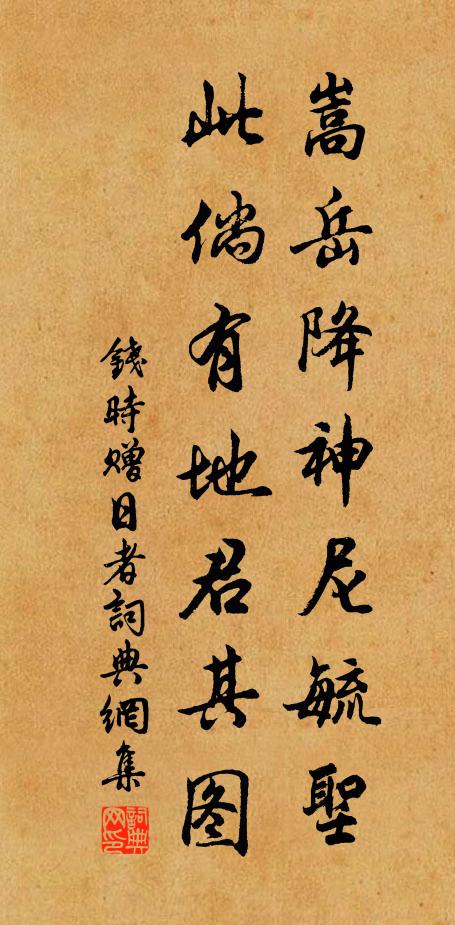 嵩岳降神尼毓聖
此倘有地君其图
錢時贈日者詞典網集
詞典网印